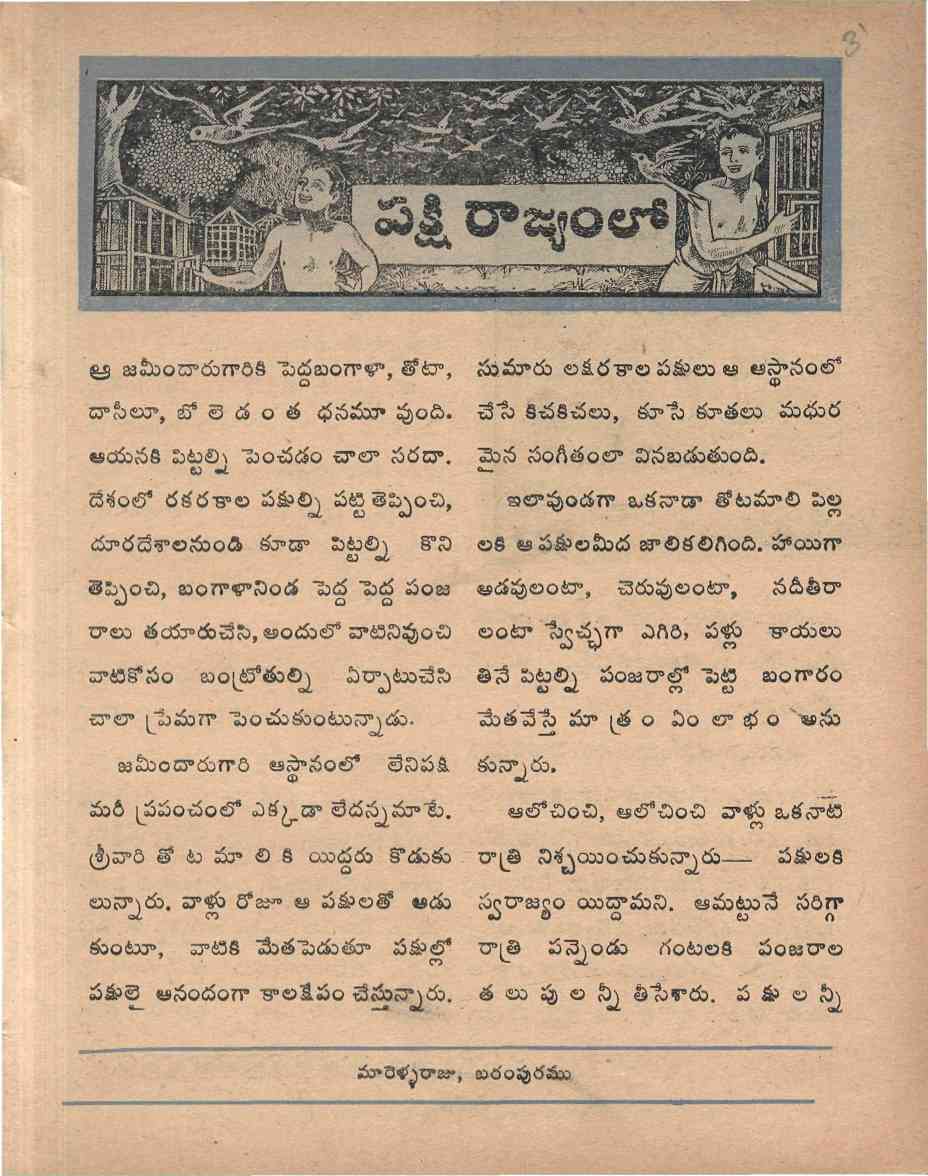 3
పక్షి రాజ్యంలో
ఆ జమీందారుగారికి పెద్దబంగాళా, తోటా,
దాసీలూ, బో లె డ ం త ధనమూ వుంది.
ఆయనకి పిట్టల్ని పెంచడం చాలా సరదా.
దేశంలో రకరకాల పక్షుల్ని పట్టి తెప్పించి,
దూరదేశాలనుండి కూడా పిట్టల్ని కొని
తెప్పించి, బంగాళానిండ పెద్ద పెద్ద పంజ
రాలు తయారుచేసి, అందులో వాటినివుంచి
వాటికోసం బంట్రోతుల్ని ఏర్పాటుచేసి
చాలా ప్రేమగా పెంచుకుంటున్నాడు.
జమీందారుగారి ఆస్థానంలో లేనిపక్షి
మరీ ప్రపంచంలో ఎక్కడా లేదన్నమాటే.
శ్రీవారి తో ట మా లి కి యిద్దరు కొడుకు
లున్నారు. వాళ్లు రోజూ ఆ పక్షులతో ఆడు
కుంటూ, వాటికి మేతపెడుతూ పక్షుల్లో
పక్షులై ఆనందంగా కాలక్షేపం చేస్తున్నారు.
సుమారు లక్షరకాల పక్షులు ఆ ఆస్థానంలో
చేసే కిచకిచలు, కూసే కూతలు మధుర
మైన సంగీతంలా వినబడుతుంది.
ఇలావుండగా ఒకనాడా తోటమాలి పిల్ల
లకి ఆ పక్షులమీద జాలికలిగింది. హాయిగా
అడవులంటా, చెరువులంటా, నదీతీరా
లంటా స్వేచ్ఛగా ఎగిరి, పళ్లు కాయలు
తినే పిట్టల్ని పంజరాల్లో పెట్టి బంగారం
మేతవేస్తే మా త్ర ం ఏం లా భ ం అను
కున్నారు.
ఆలోచించి, ఆలోచించి వాళ్లు ఒకనాటి
రాత్రి నిశ్చయించుకున్నారు— పక్షులకి
స్వరాజ్యం యిద్దామని. ఆమట్టునే సరిగ్గా
రాత్రి పన్నెండు గంటలకి పంజరాల
త లు పు ల న్నీ తీసేశారు. ప క్షు ల న్నీ
మారెళ్ళరాజు, బరంపురము